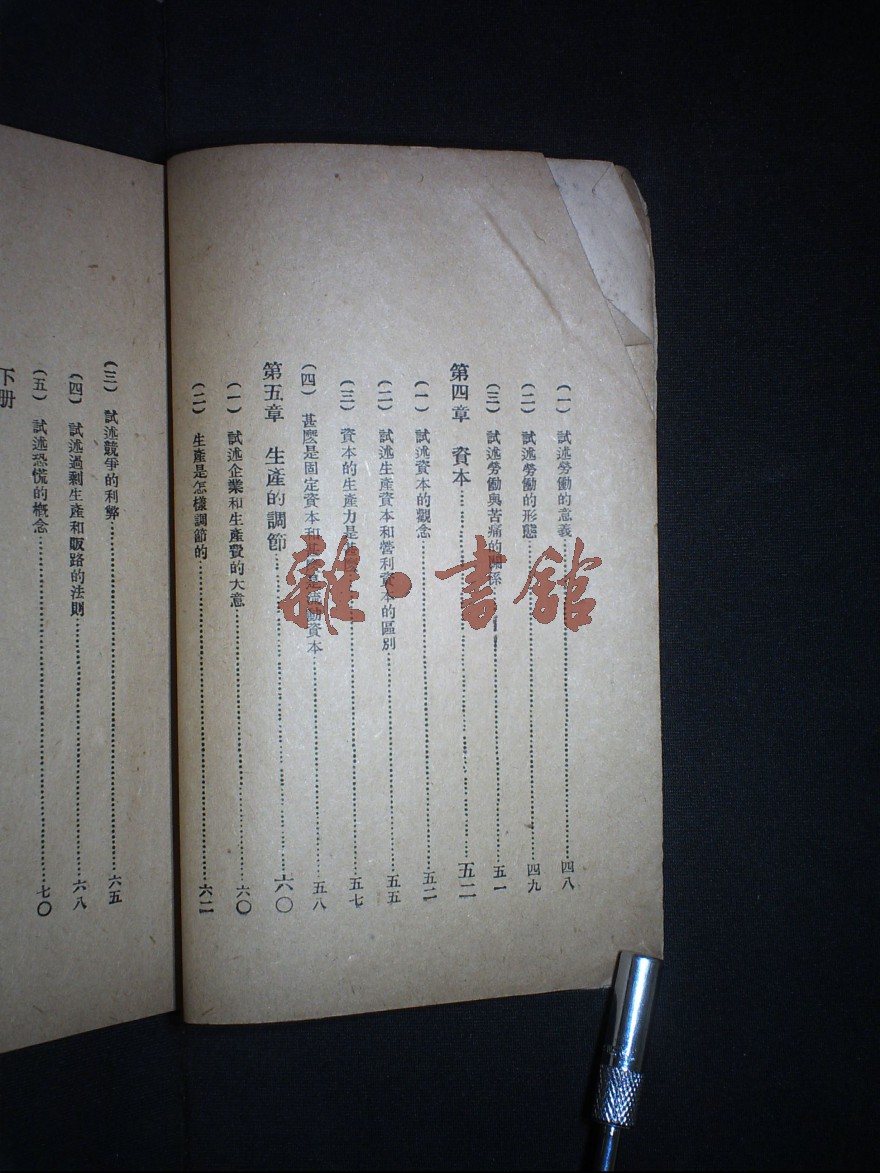 (一) 試述勞働的意義……四八
(二) 試述勞働的形態……四九
(三) 試述勞働與苦痛的關係……五一
第四章 資本……五二
(一) 試述資本的觀念……五二
(二) 試述生產資本和營利資本的區別……五五
(三) 資本的生產力是……五七
(四) 甚麼是固定資本和甚麼是流動資本……五八
第五章 生產的調節……六〇
(一) 試述企業和生產費的大意……六〇
(二) 生產是怎樣調節的……六二
(三) 試述競爭的利弊……六五
(四) 試述過剩生產和販路的法則……六八
(五) 試述恐慌的概念……七〇
下册
雜·書館